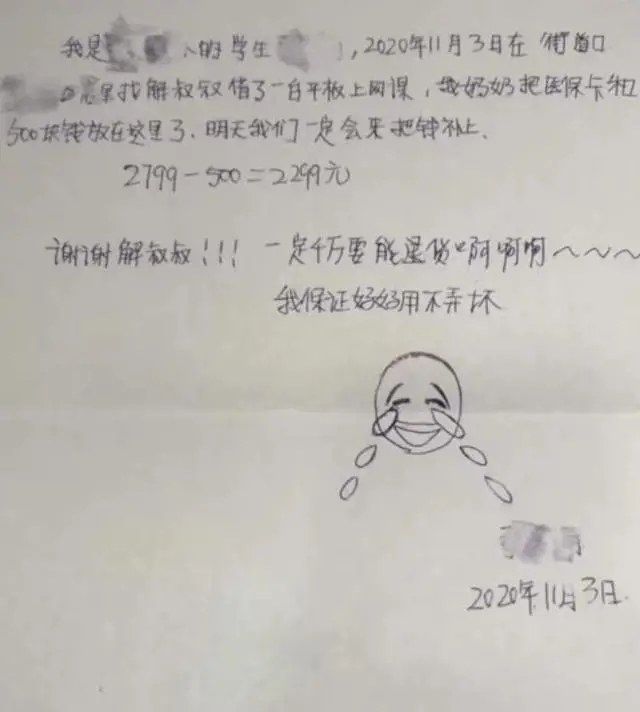 我是 的学生 ,2020年11月3日在 街道口
找解叔叔借了一台平板上网课,我妈妈把医保卡和
500块钱放在这里了,明天我们一定会来把钱补上.
2799-500=2299元
谢谢解叔叔!!! 一定千万要能退货啊啊啊~~~
我保证好好用不弄坏
2020年11月3日